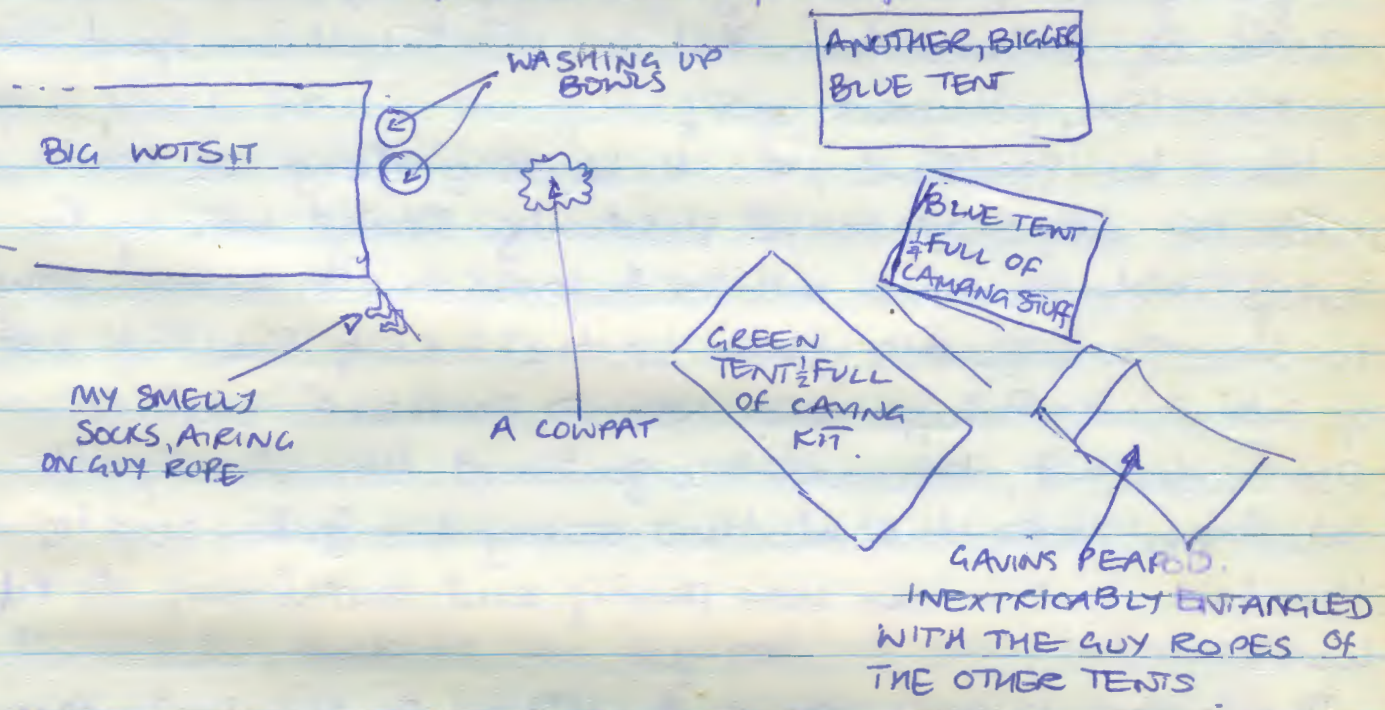 WASHING UP
BOWLS
ANOTHER, BIGGER
BLUE TENT
BIG WOTSIT
BLUE TENT
¼ FULL OF
CAMPING STUFF
GREEN
TENT ½ FULL
OF CAVING
KIT.
MY SMELLY
SOCKS, AIRING
ON GUY ROPE
A COWPAT
GAVINS PEAPOD.
INEXTRICABLY ENTANGLED
WITH THE GUY ROPES OF
THE OTHER TENTS